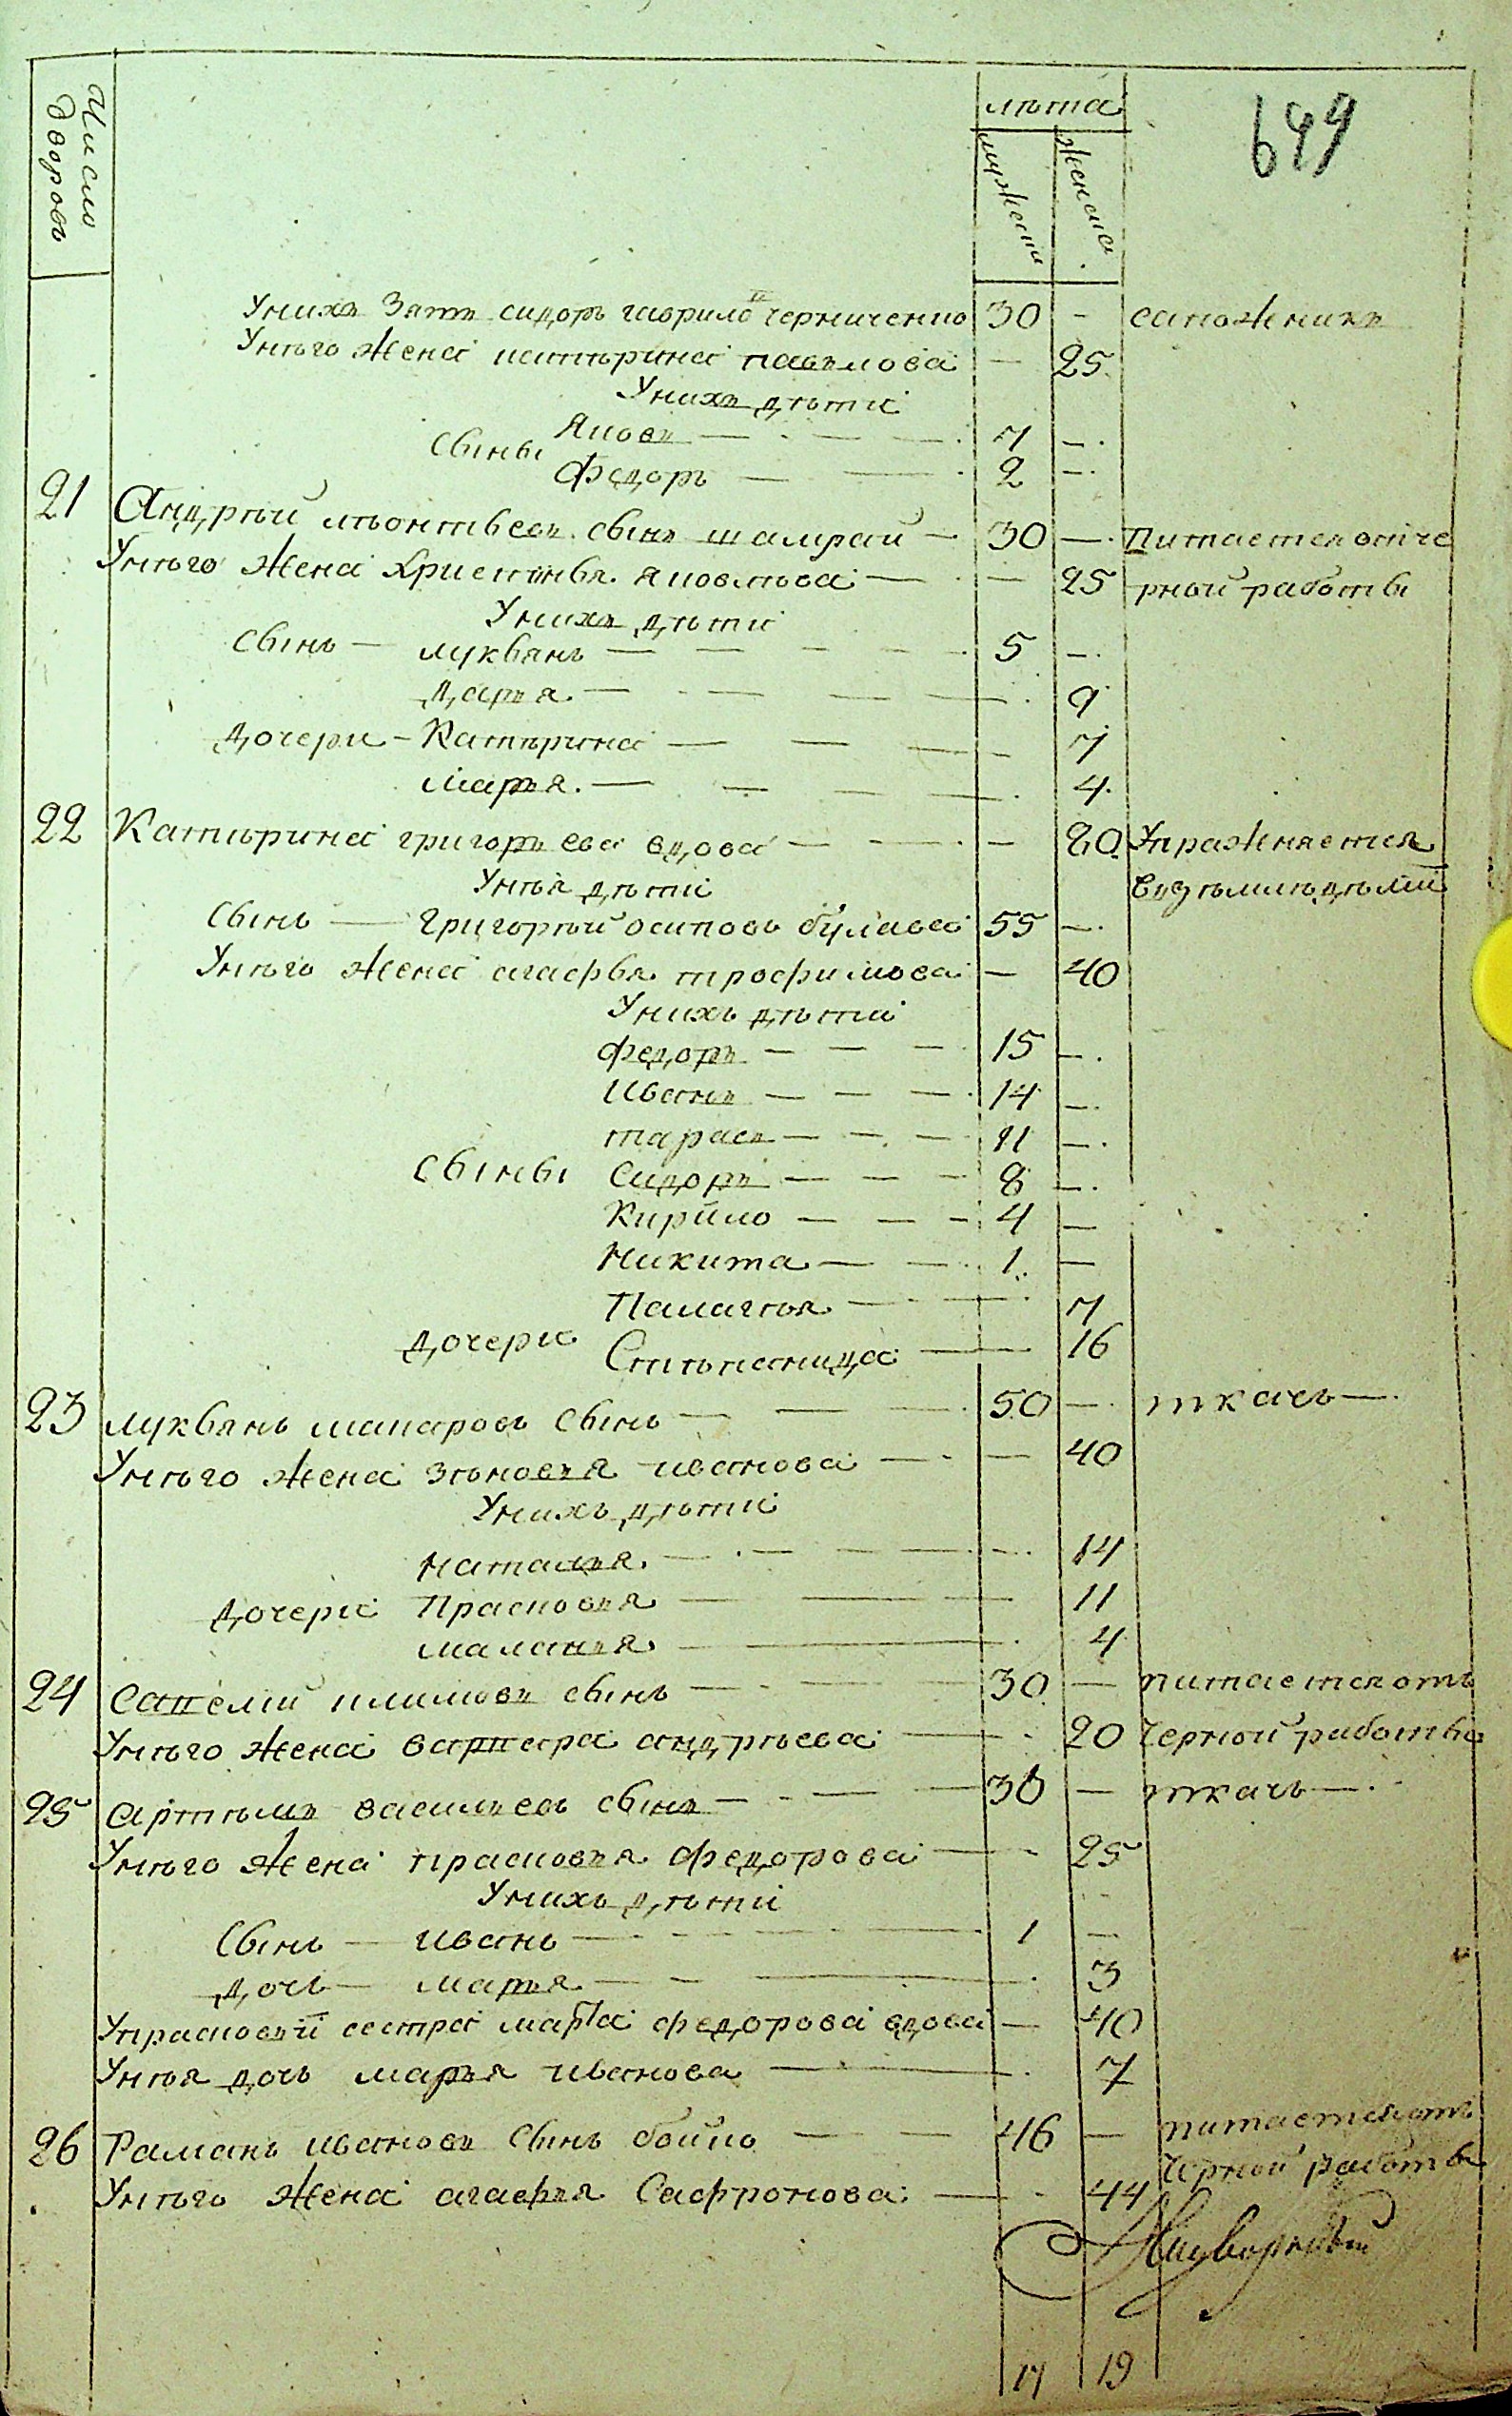 Число дворовъ
лѣта
мужеска
женска
649
Унихъ Зять сидоръ гаврило черниченко 30 - сапожникъ
Унѣго жена катѣрина павълова - 25
Унихъ дѣти
Яковъ 7 -
Сыны
Федоръ 2 -
21 Андрѣй лѣонтьевъ сынъ шамрай 30 - питается отче
Унѣго жена Христинья яковлѣва - 25 рной работы
Унихъ дѣти
Сынь лукьянь 5 -
Даръя 9
Дочери - Катѣрина - 7
Маръя 4
22 Катѣрина григоръева вдова - 80 Упражняется
Унѣя дѣти взѣмлѣдѣлии
Сынь Григорѣй осиповь булава 55 -
Унѣго жена агафья трофимова - 40
Унихь дѣти
Федоръ 15 -
Иванъ 14 -
тарасъ 11 -
Сыны Сидоръ 8 -
Кирило 4 -
Никита 1 -
Палагѣя 7
Дочери
Стѣпанида 16
23 лукьянь макаровь сынь 50 - ткачь
Унѣго жена зѣновъя иванова - 40
Унихь дѣти
Наталъя - 14
Дочери Прасковъя 11
маланъя 4
24 Савелий климовъ сынь 30 - питается отъ
Унѣго жена варвара андрѣева 20 Черной работы
25 Артѣмъ василъевь сынъ 30 - ткачь
Унѣго жена прасковъя федорова - 25
Унихь дѣти
Сынь ивань 1 -
Дочь маръя 3
Упрасковъи сестра марfа федорова вдова - 40
Унѣя дочь маръя иванова 7
26 Раманъ ивановъ сынъ бойко 46 - питается отъ
Черной работы
Унѣго жена агафъя Сафронова - 44
17 19